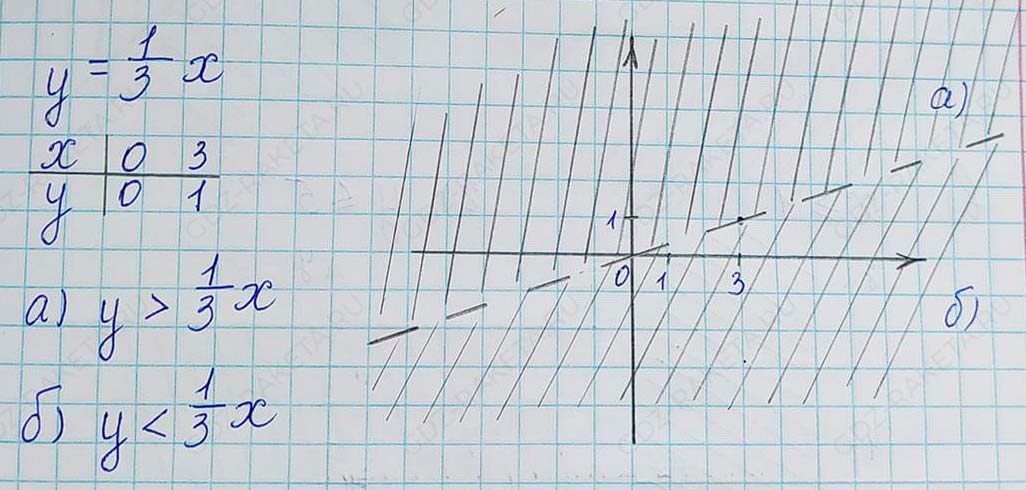 y = 1/3 x
x | 0 3
y | 0 1
а) y > 1/3 x
б) y < 1/3 x
а)
1
0 1 3
б)
GDZ-RAKETA.RU